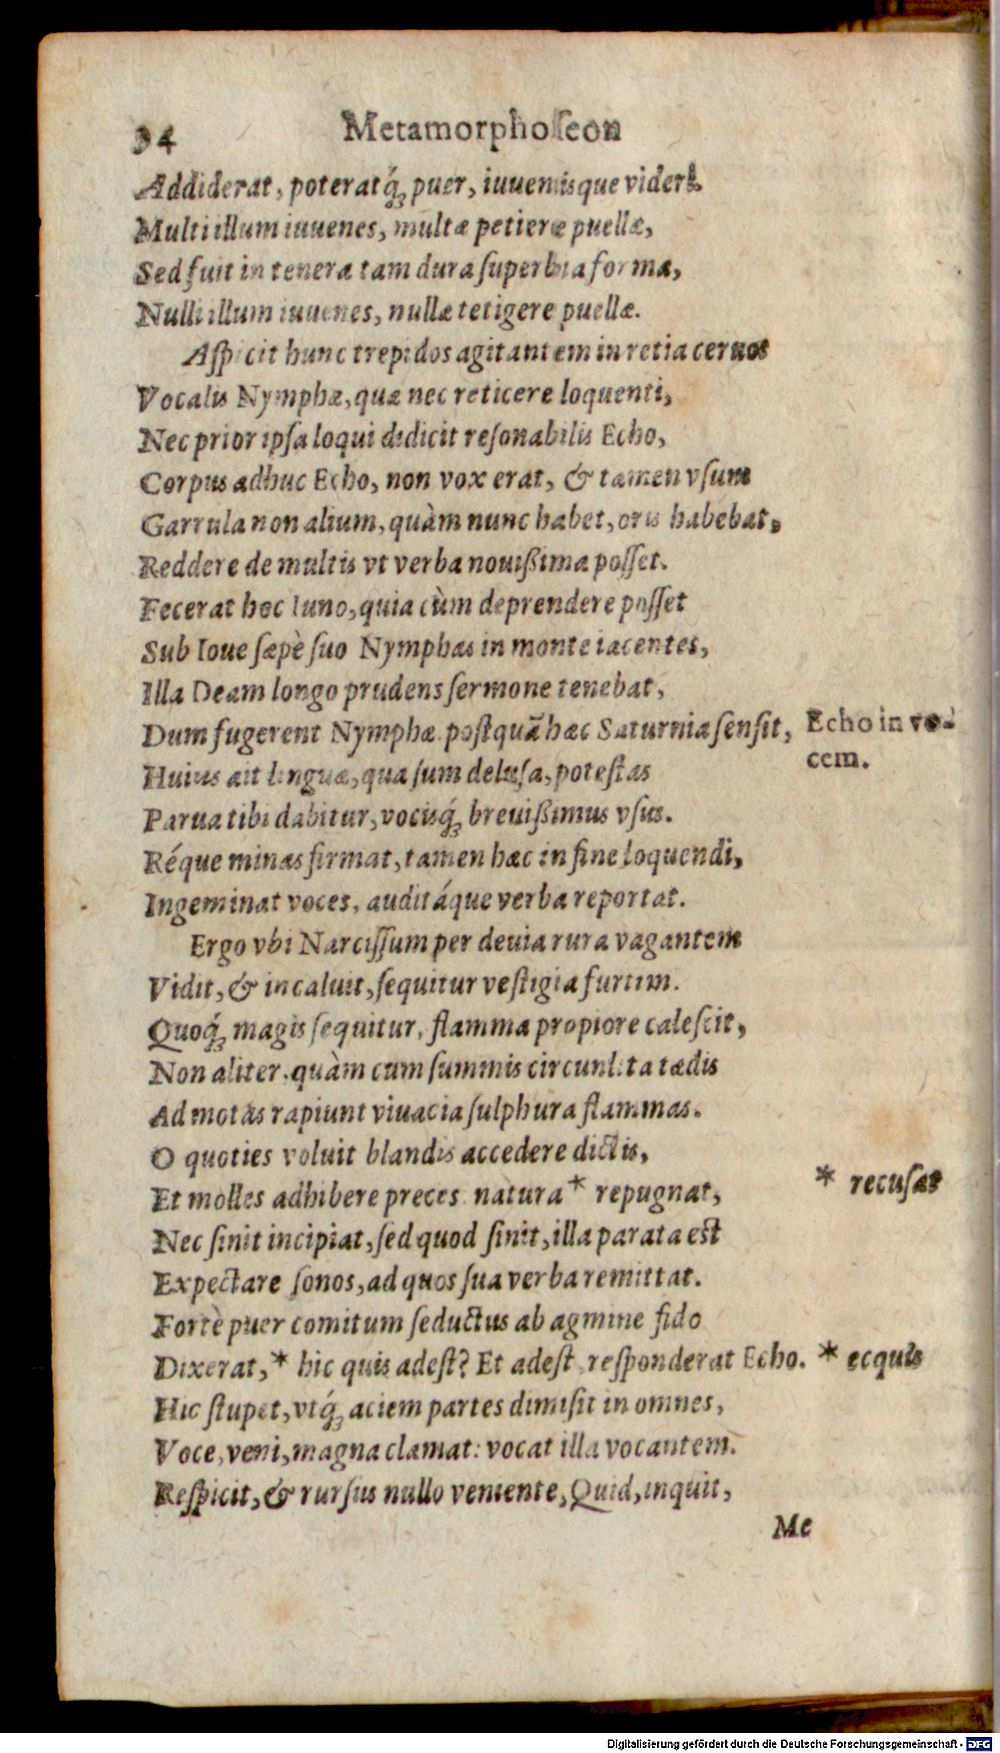 94 Metamorphoſeon
Addiderat, poteratq́; puer, iuuenisque videri.
Multi illum iuuenes, multæ petiere puellæ,
Sed fuit in tenera tam dura ſuperbia forma,
Nulli illum iuuenes, nullæ tetigere puellæ.
Aſpicit hunc trepidos agitantem in retia ceruos
Vocalis Nymphæ, quæ nec reticere loquenti,
Nec prior ipſa loqui didicit reſonabilis Echo,
Corpus adhuc Echo, non vox erat, & tamen vſum
Garrula non alium, quàm nunc habet, oris habebat,
Reddere de multis vt verba nouißima poſſet.
Fecerat hoc Iuno, quia cùm deprendere poſſet
Sub Ioue ſæpè ſuo Nymphas in monte iacentes,
Illa Deam longo prudens ſermone tenebat,
Dum fugerent Nymphæ poſtquā hæc Saturnia ſenſit,
Echo in vo-
cem.
Huius ait linguæ, qua ſum deluſa, poteſtas
Parua tibi dabitur, vocisq́; breuißimus vſus.
Réque minas firmat, tamen hæc in fine loquendi,
Ingeminat voces, auditáque verba reportat.
Ergo vbi Narciſſum per deuia rura vagantem
Vidit, & incaluit, ſequitur veſtigia furtim.
Quoq́; magis ſequitur, flamma propiore caleſcit,
Non aliter, quàm cum ſummis circunlita tædis
Admotas rapiunt viuacia ſulphura flammas.
O quoties voluit blandis accedere dictis,
Et molles adhibere preces natura * repugnat,
* recuſat
Nec ſinit incipiat, ſed quod ſinit, illa parata eſt
Expectare ſonos, ad quos ſua verba remittat.
Fortè puer comitum ſeductus ab agmine fido
Dixerat, * hic quis adeſt? Et adeſt reſponderat Echo.
* ecquis
Hic ſtupet, vtq́; aciem partes dimiſit in omnes,
Voce, veni, magna clamat: vocat illa vocantem.
Reſpicit, & rurſus nullo veniente, Quid, inquit,
Me
Digitalisierung gefördert durch die Deutsche Forschungsgemeinschaft - DFG